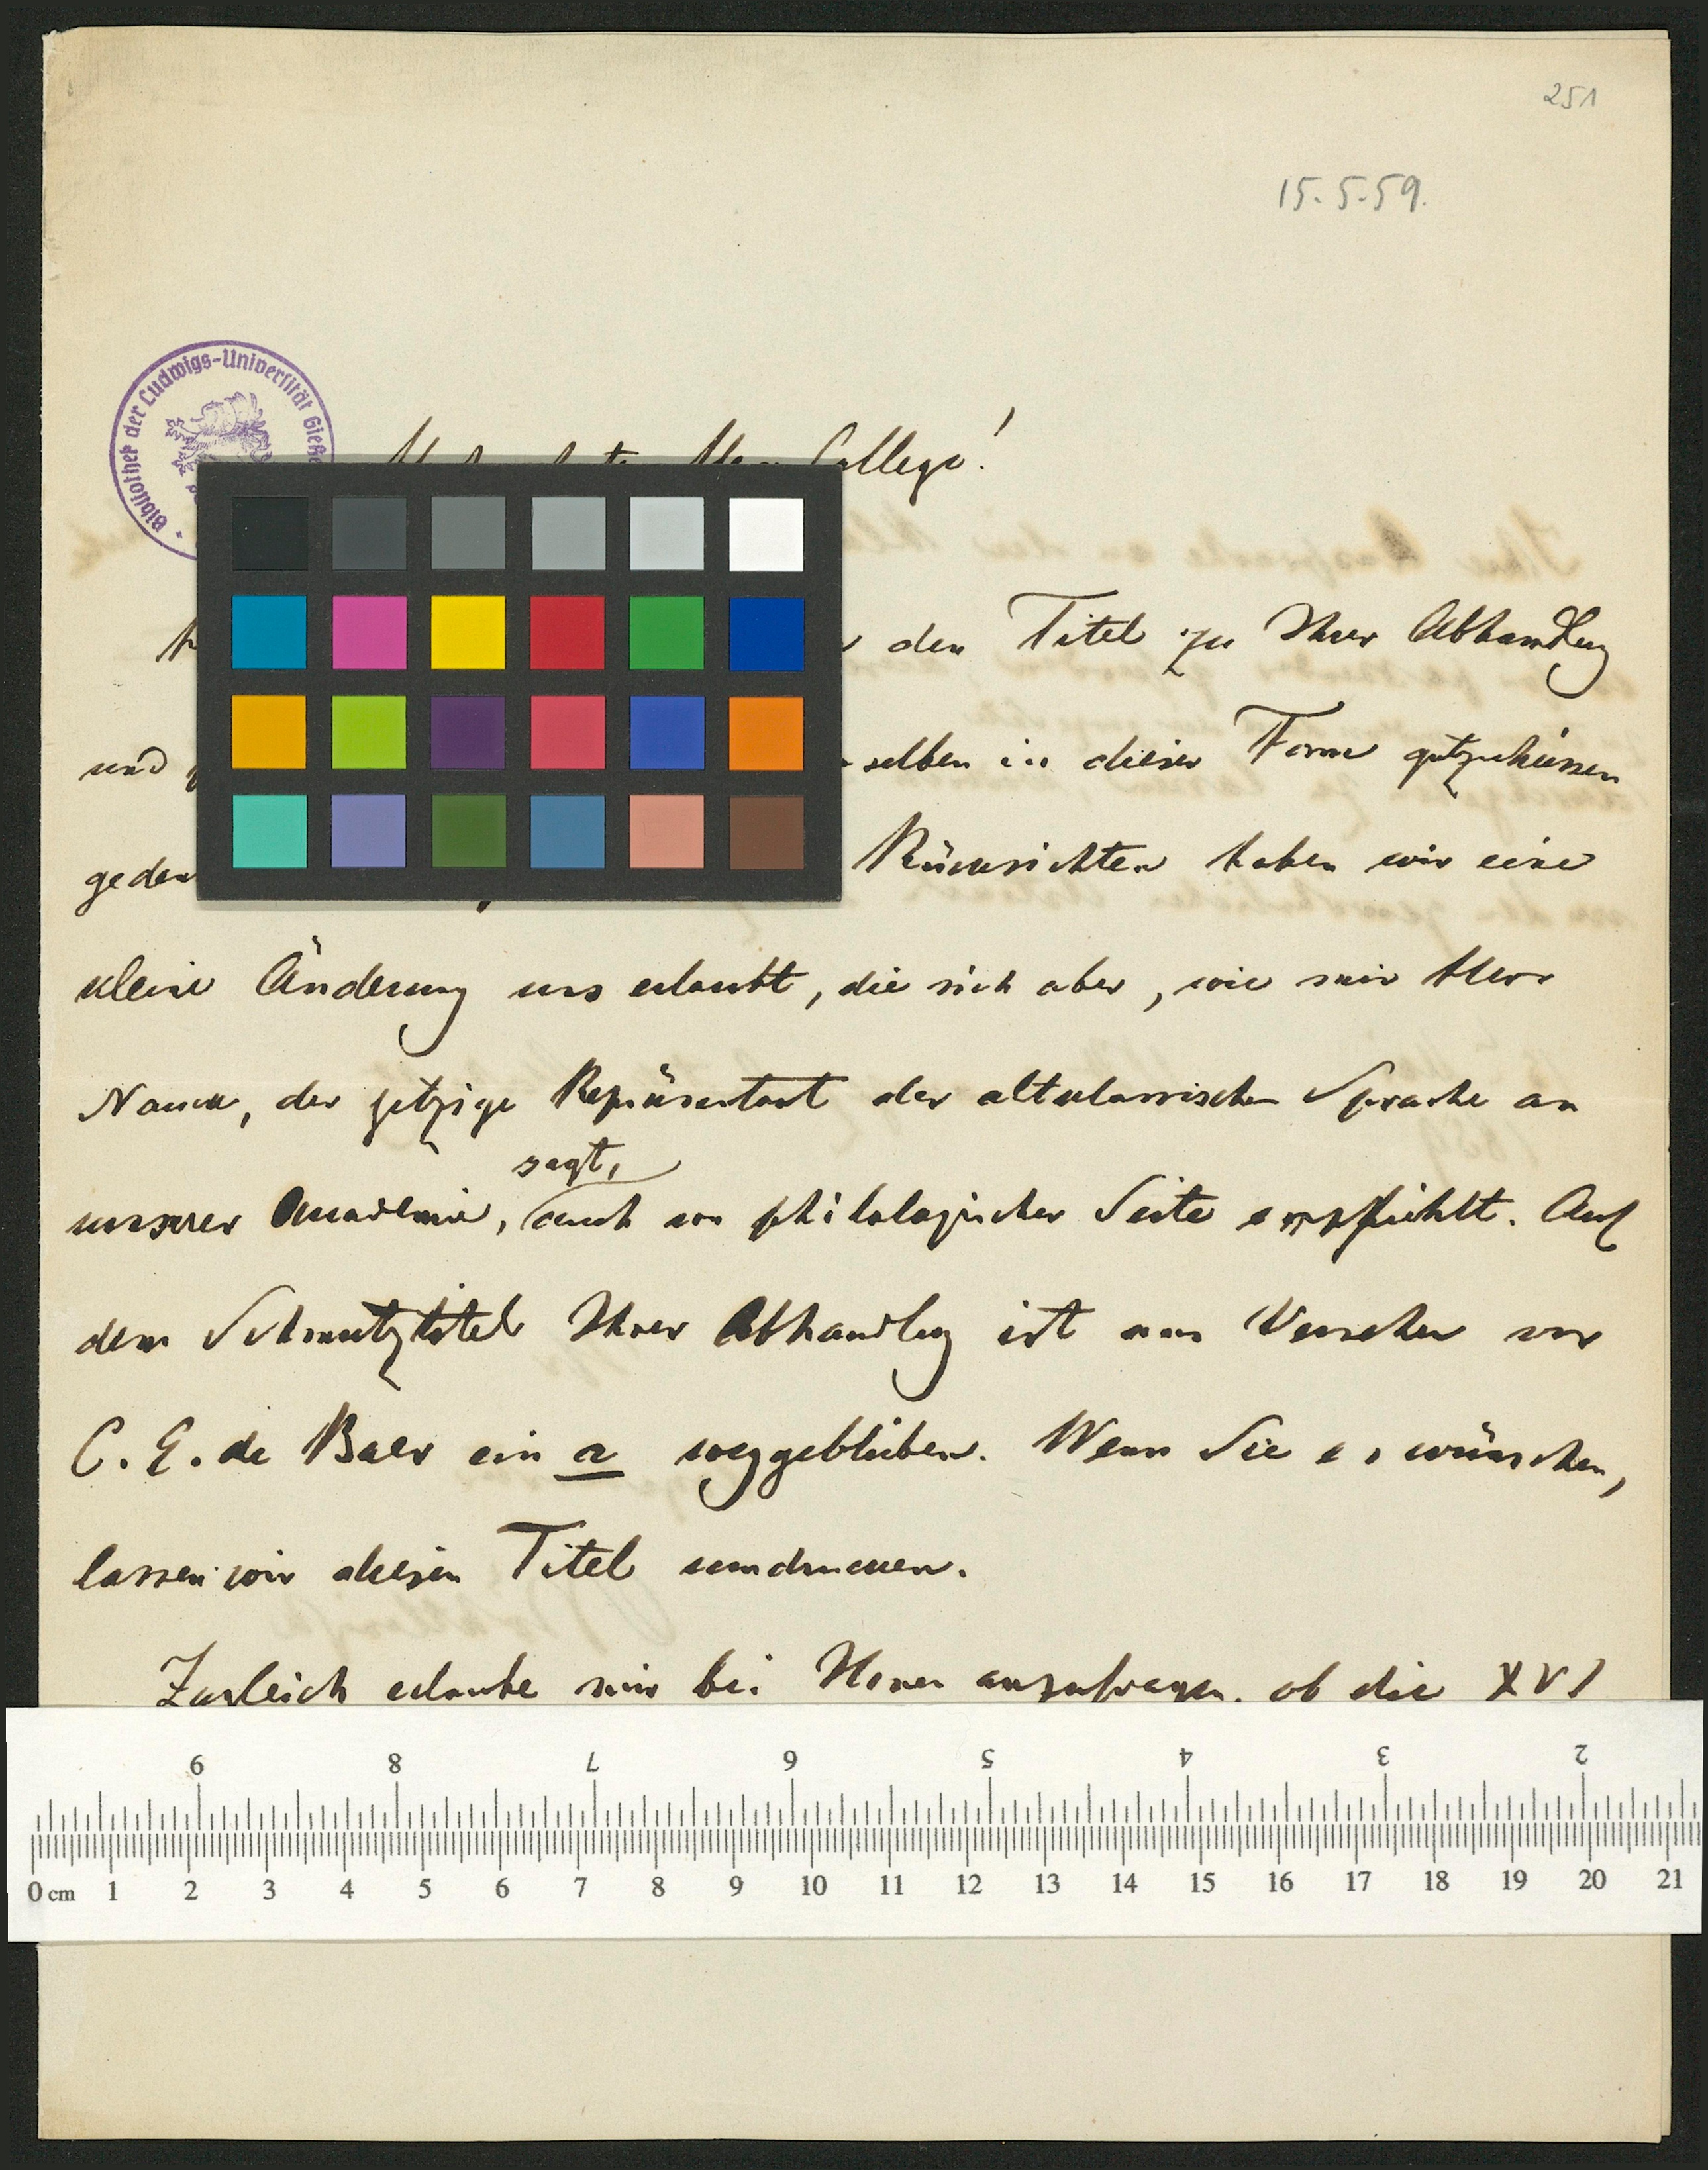 251
15.5.59.
Bibliothek der Ludwigs-Universität Gieße
College!
den Titel zu Ihrer Abhandlung
und selben in dieser Form gutzuheissen
Rücksichten haben wir eine
kleine Änderung uns erlaubt, die sich aber, wie mir Herr
Nauck, der jetzige Repräsentant der altklassischen Sprache an
sagt,
unserer Akademie, auch von philologischer Seite empfiehlt. Auf
dem Schmutztitel Ihrer Abhandlung ist aus Versehen vor
C. E. de Baer ein a weggeblieben. Wenn Sie es wünschen,
lassen wir diesen Titel umdrucken.
Zugleich erlaube mir bei Ihnen anzufragen, ob die XVI
9 8 7 6 5 4 3 2
0 cm 1 2 3 4 5 6 7 8 9 10 11 12 13 14 15 16 17 18 19 20 21